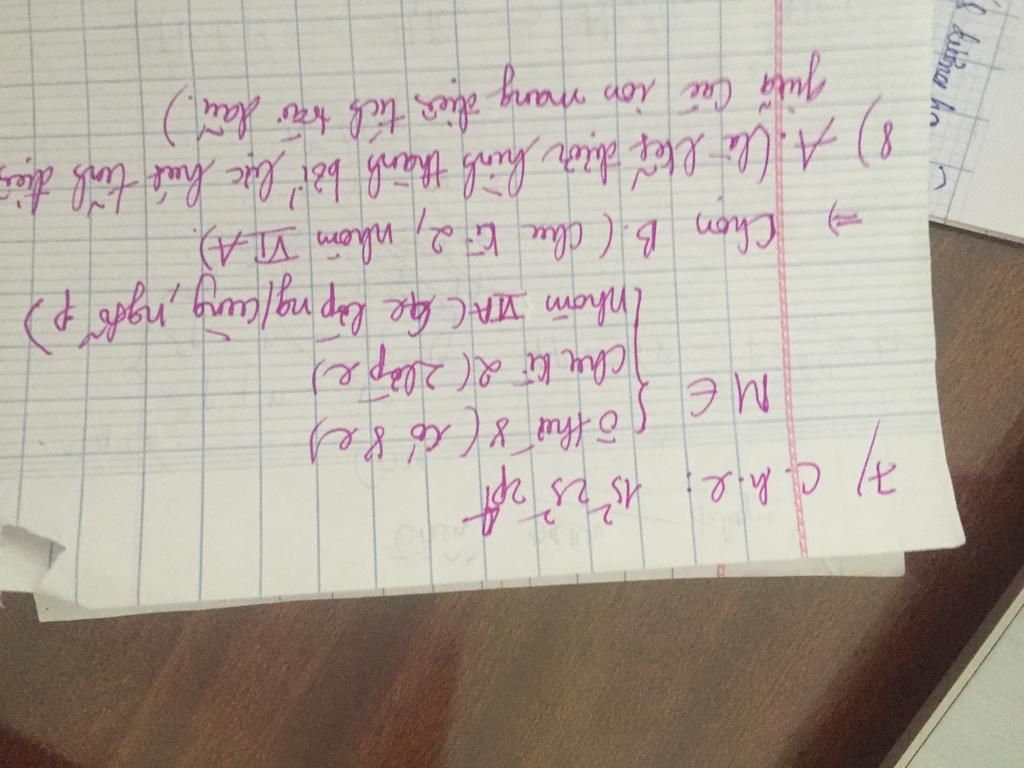 7) C.h.e: 1s² 2s² 2p⁴
M ∈ { ô thứ 8 (có 8 e)
chu kì 2 (2 lớp e)
nhóm VIA (6e lớp ng/cùng, ngtố p)
⇒ Chọn B. (chu kì 2, nhóm VIA).
8) A. (là lkết được hình thành bởi lực hút tĩnh điện
giữa các ion mang điện tích trái dấu.)
đường